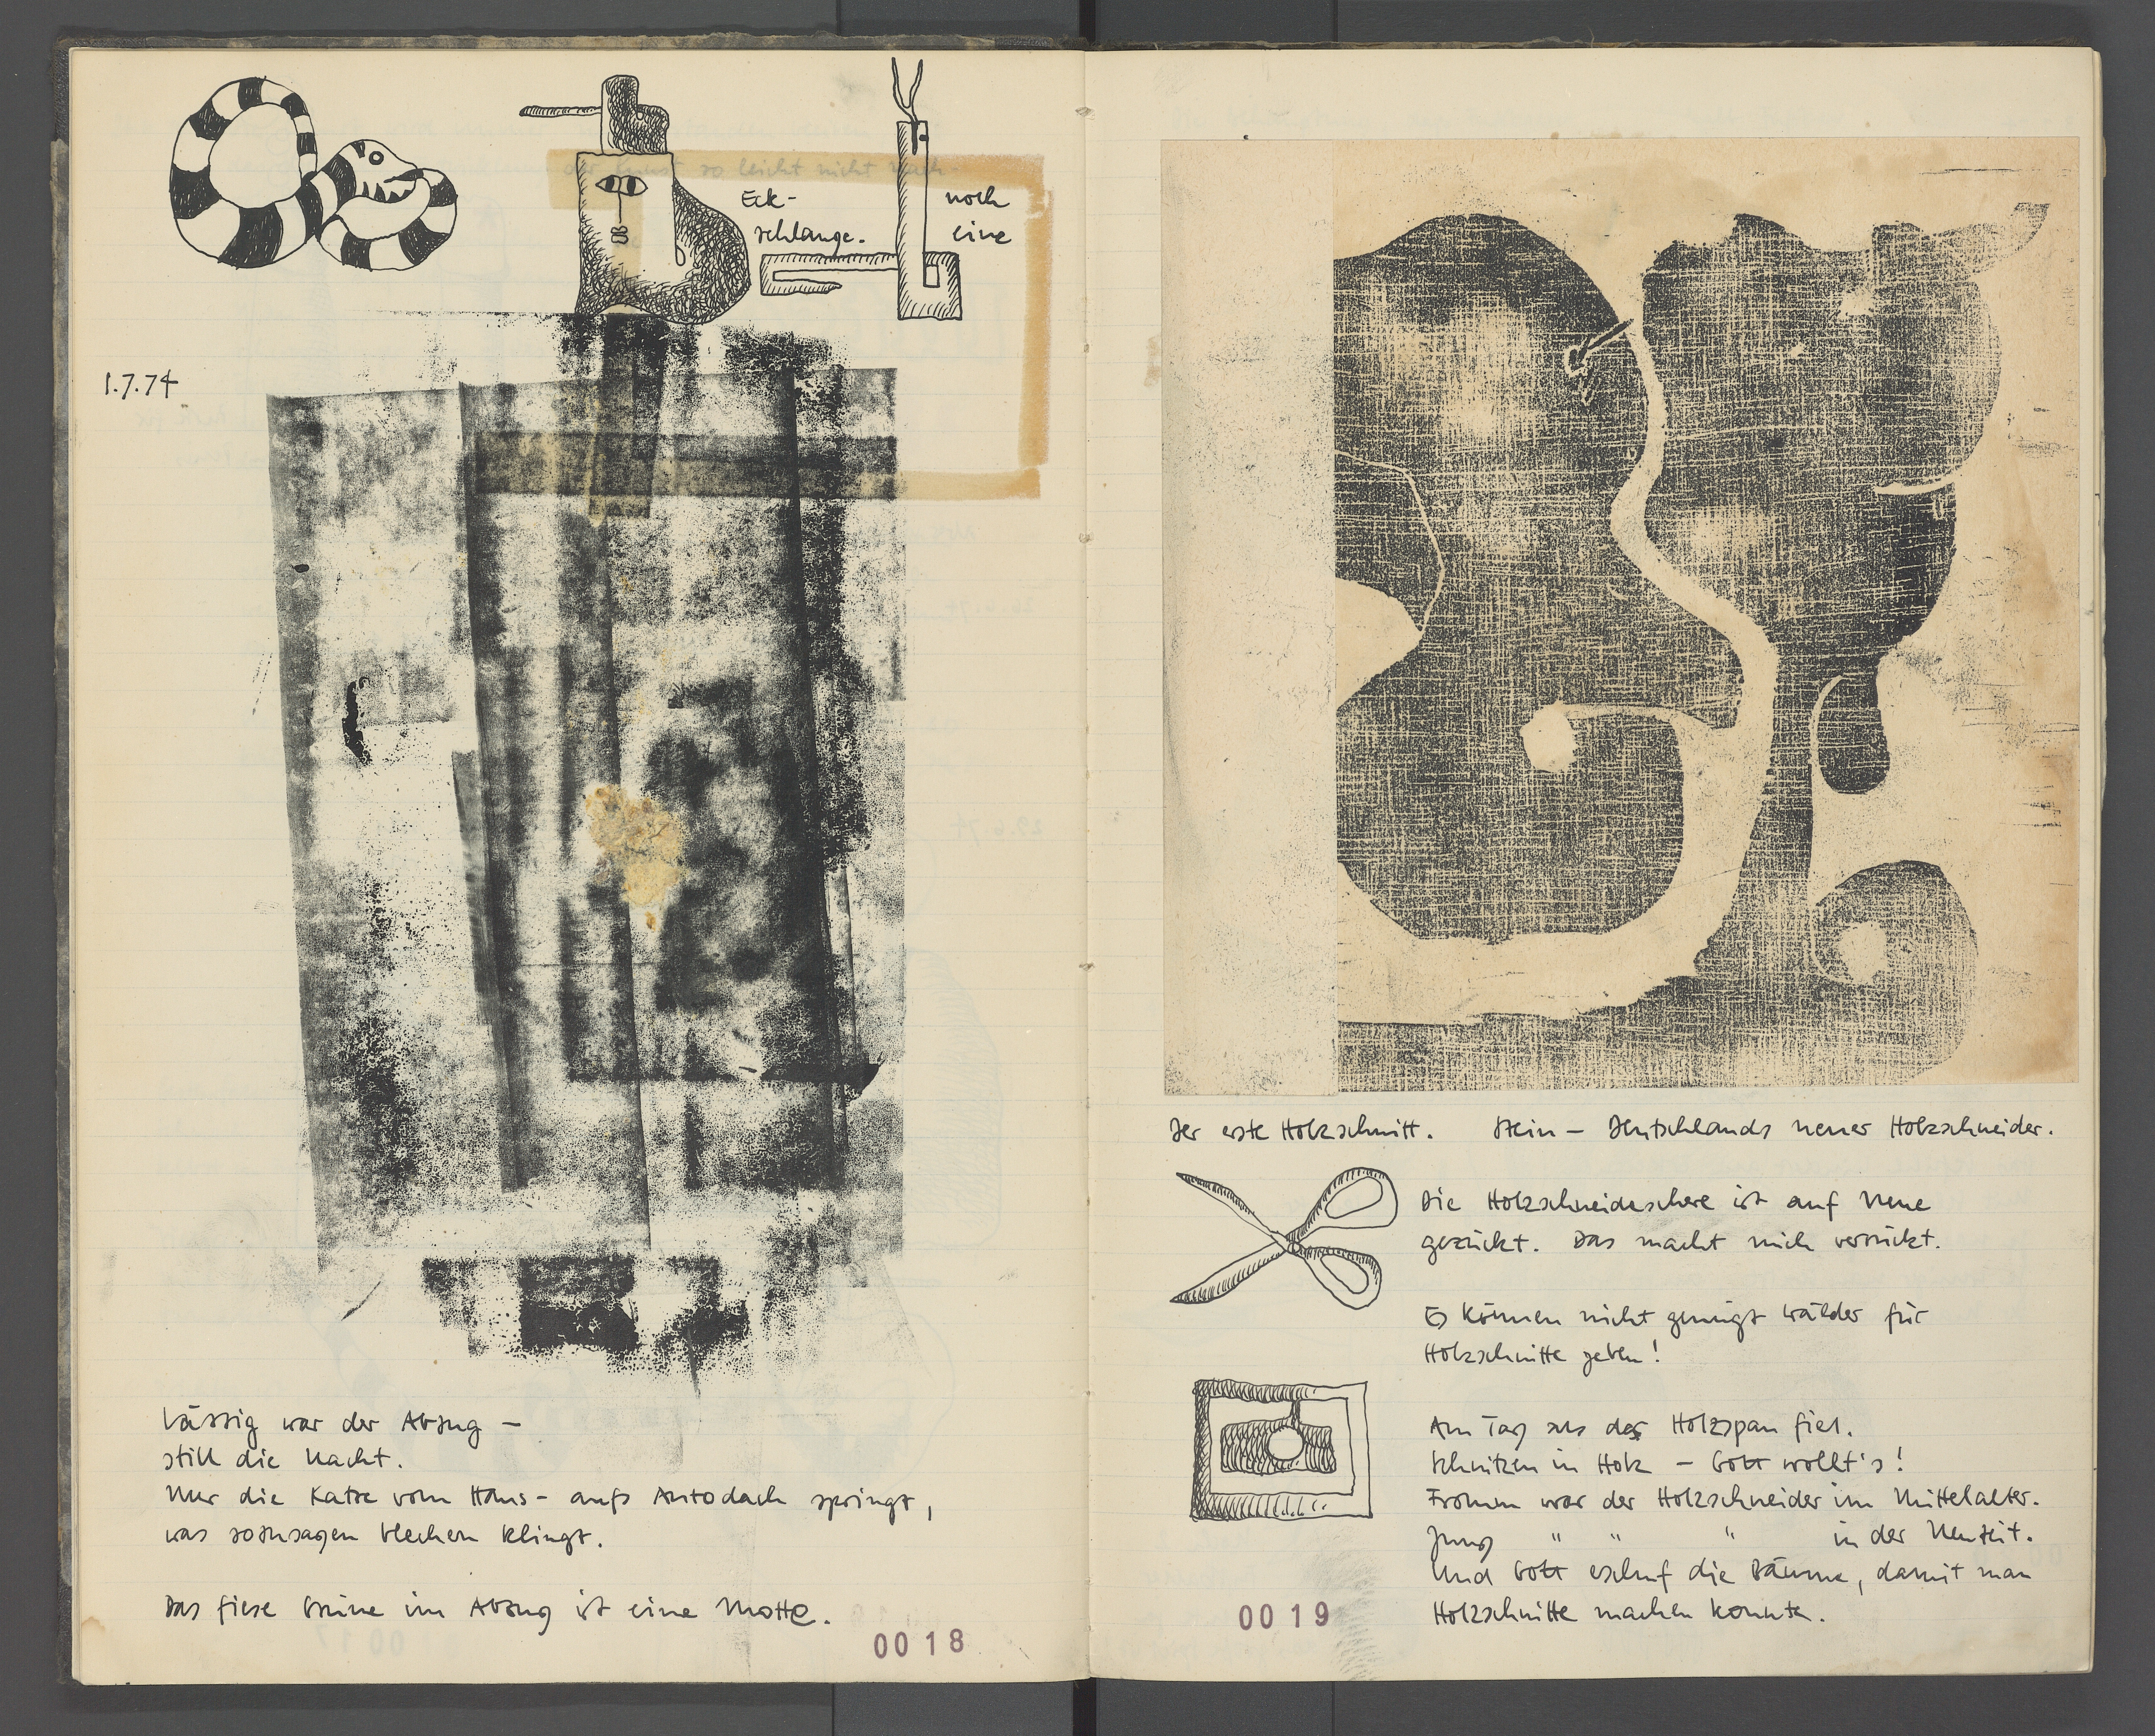 Eck-
schlange.
noch
eine
1.7.74
Lässig war der Abzug –
still die Nacht.
Nur die Katze vom Haus- aufs Autodach springt,
was sozusagen blechern klingt.
Das fiese Grüne im Abzug ist eine Motte.
0018
Der erste Holzschnitt. Stein – Deutschlands neuer Holzschneider.
Die Holzschneideschere ist aufs Neue
gezückt. Das macht mich verrückt.
Es können nicht genügt Wälder für
Holzschnitte geben!
Am Tag als der Holzspan fiel.
Schnitzen in Holz – Gott wollt's!
Fromm war der Holzschneider im Mittelalter.
Jung " " " in der Neuzeit.
Und Gott eschuf die Bäume, damit man
Holzschnitte machen konnte.
0019